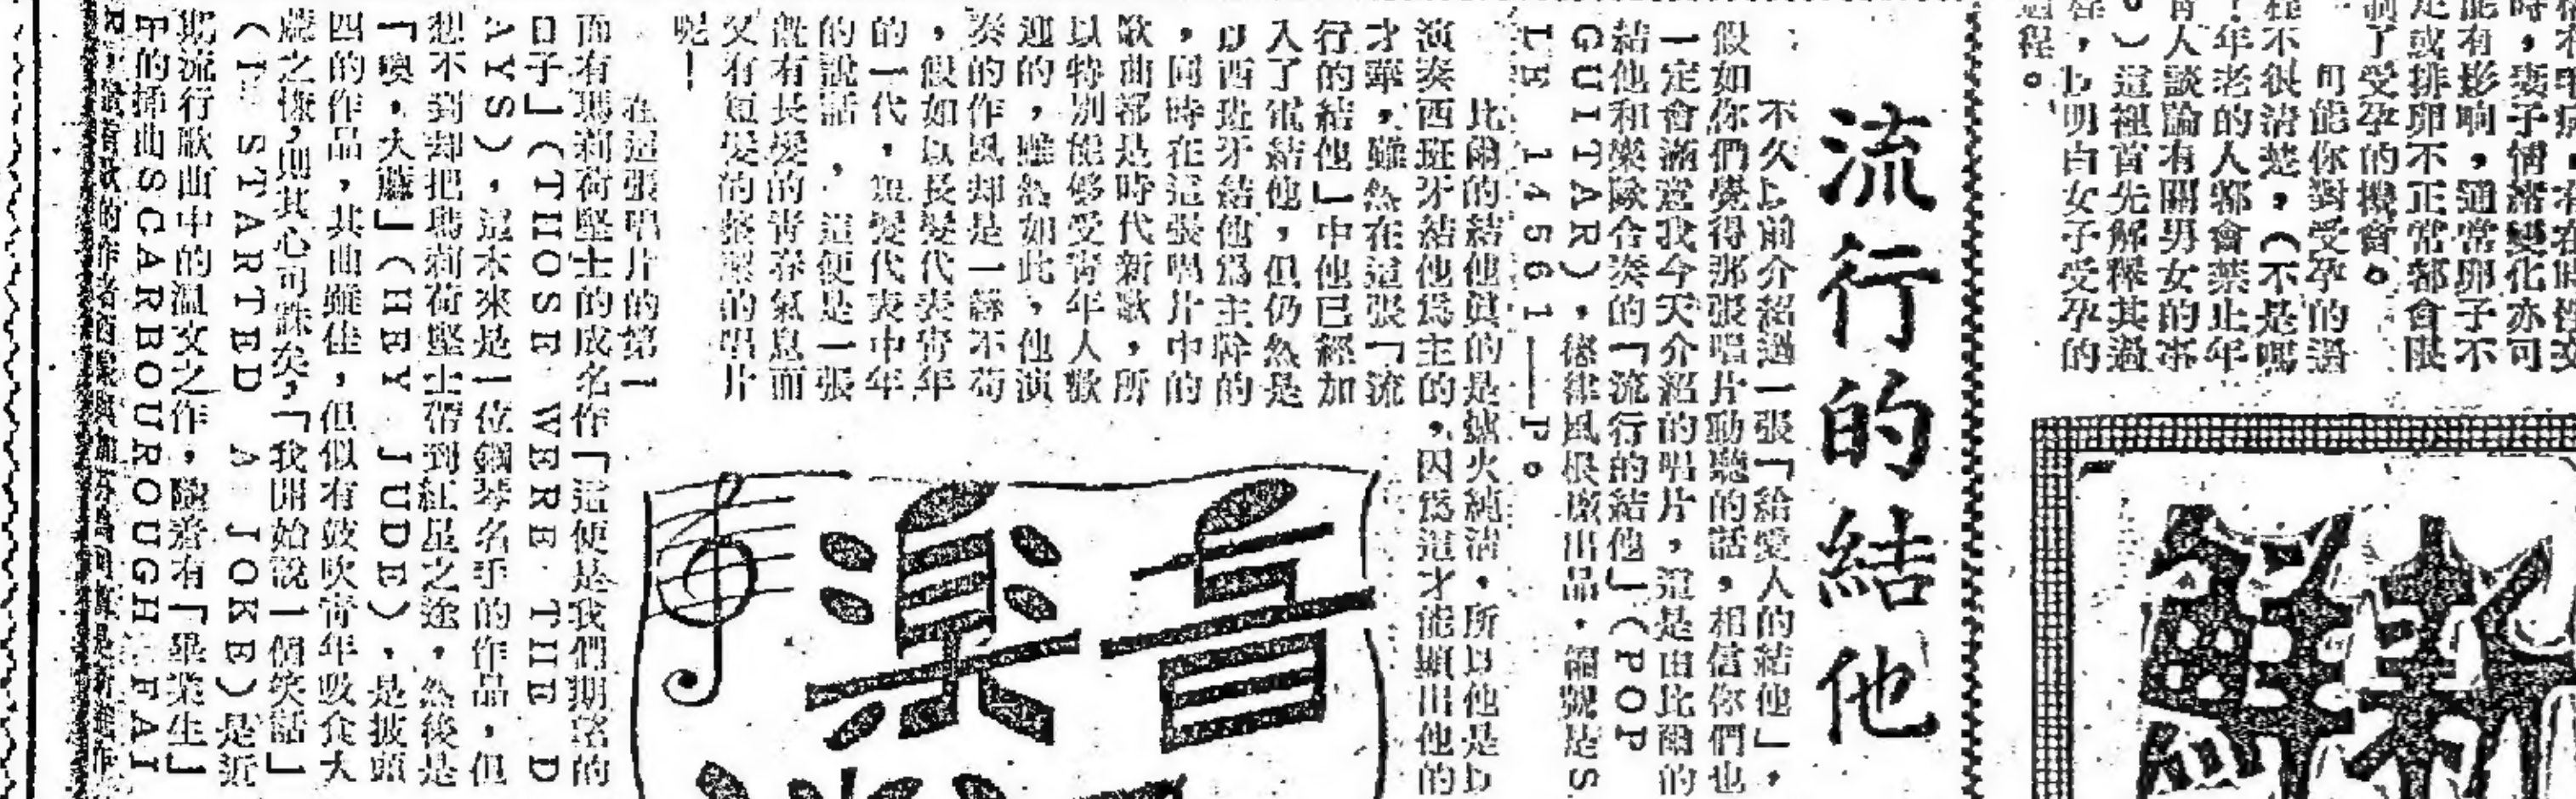 時，妻子情緒變化亦可
能有影响，通常卵子不
定或排卵不正常都會限
制了受孕的機會。
可能你對受孕的過
程不很清楚，（不是嗎
？年老的人都會禁止年
青人談論有關男女的事
。）這裡首先解釋其過
程，以明白女子受孕的
過程。
流行的結他
不久以前介紹過一張「給愛人的結他」，
假如你們覺得那張唱片動聽的話，相信你們也
一定會滿意我今天介紹的唱片，這是由比爾的
結他和樂隊合奏的「流行的結他」（POP
GUITAR），德律風根廠出品，編號是S
LE 14561——P。
比爾的結他眞的是爐火純清，所以他是以
演奏西班牙結他爲主的，因爲這才能顯出他的
才華，雖然在這張「流
行的結他」中他已經加
入了電結他，但仍然是
以西班牙結他爲主幹的
，同時在這張唱片中的
歌曲都是時代新歌，所
以特別能够受靑年人歡
迎的，雖然如此，他演
奏的作風却是一絲不苟
，假如以長髮代表靑年
的一代，短髮代表中年
的說話，這便是一張
旣有長髮的靑春氣息而
又有短髮的嚴肅的唱片
呢！
音樂
在這張唱片的第一
面有瑪莉荷堅士的成名作「這便是我們期望的
日子」（THOSE WERE THE D
AYS），這本來是一位鋼琴名手的作品，但
想不到却把瑪莉荷堅士帶到紅星之途，然後是
「噢，大麻」（HEY JUDE），是披頭
四的作品，其曲雖佳，但似有鼓吹靑年吸食大
麻之嫌，則其心可誅矣，「我開始說一個笑話」
（I STARTED A JOKE）是近
期流行歌曲中的溫文之作，隨着有「畢業生」
中的揷曲SCARBOUROUGH FAI